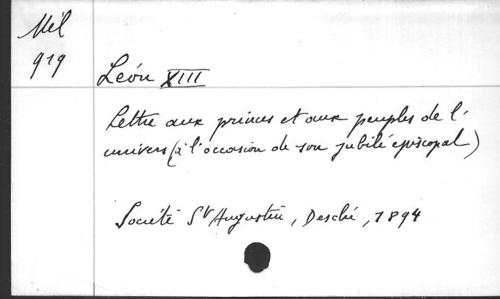 Mél
919
Léon XIII
Lettre aux princes et aux peuples de l'
univers (à l'occasion de son jubilé épiscopal)
Société St Augustin, Desclé, 1894